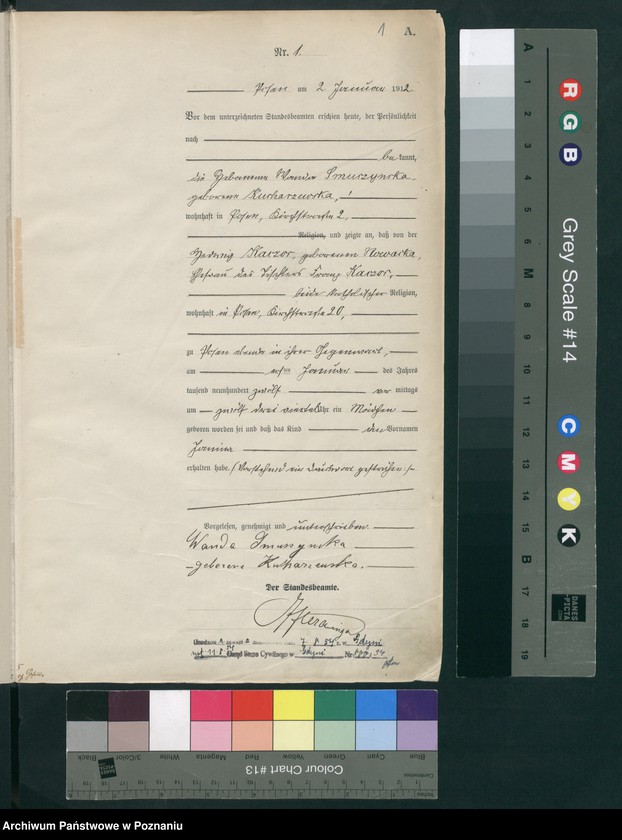 1 A.
Nr. 1.
Posen am 2 Januar 1912
Vor dem unterzeichneten Standesbeamten erschien heute, der Persönlichkeit
nach
be kannt,
die Hebamme Wanda Smuszynska
geborene Kucharzewska,
wohnhaft in Posen, Kirchstrasse 2,
Religion, und zeigte an, daß von der
Hedwig Kaczor, geborenen Nowacka,
Ehefrau des Tischlers Franz Kaczor,
beide katholischer Religion,
wohnhaft in Posen, Kirchstrasse 20,
zu Posen in ihrer Gegenwart,
am Januar des Jahres
tausend neunhundert zwölf vor mittags
um zwölf drei viertel Uhr ein Mädchen
geboren worden sei und daß das Kind den Vornamen
Janina
erhalten habe. (Vorstehend ein Druckwort gestrichen.)
Vorgelesen, genehmigt und unterschrieben.
Wanda Smuszynska
geborene Kucharzewska.
Der Standesbeamte.
Urząd Stanu Cywilnego w Gdyni Nr
A 1 2 3 4 5 6 M 8 9 10 11 12 13 14 15 B 17 18 19
R G B
Grey Scale #14
C M Y K
DANES
PICTA
Blue Cyan Green Yellow Red Magenta White 3/Color Black
Colour Chart #13
Centimetres
Archiwum Państwowe w Poznaniu